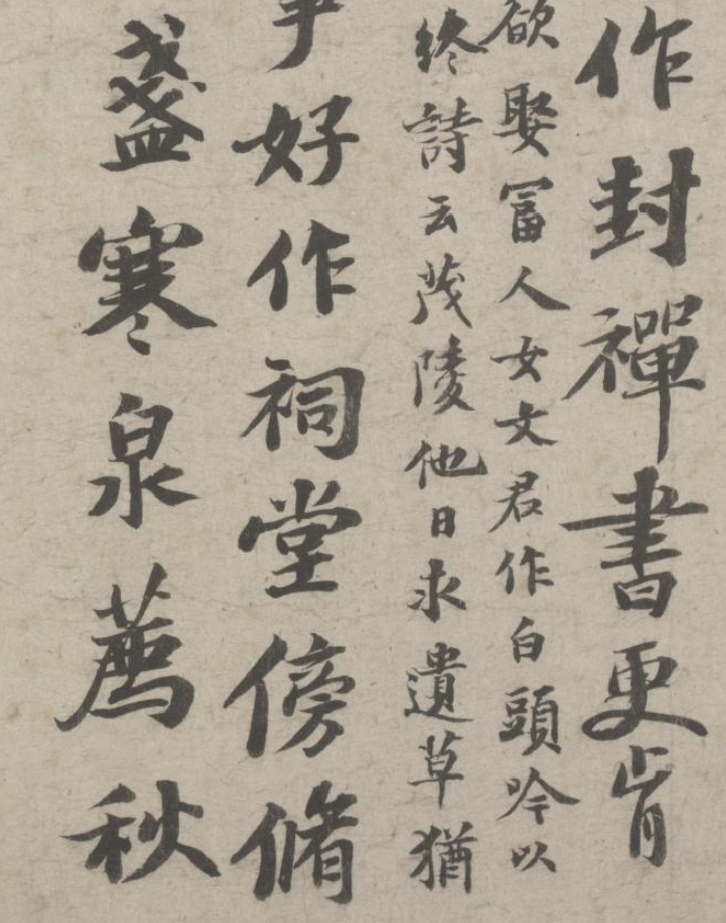 作封禪書更肯
欲娶冨人女文君作白頭吟以
終詩云茂陵他日求遺草猶
好作祠堂傍脩
盞寒泉薦秋